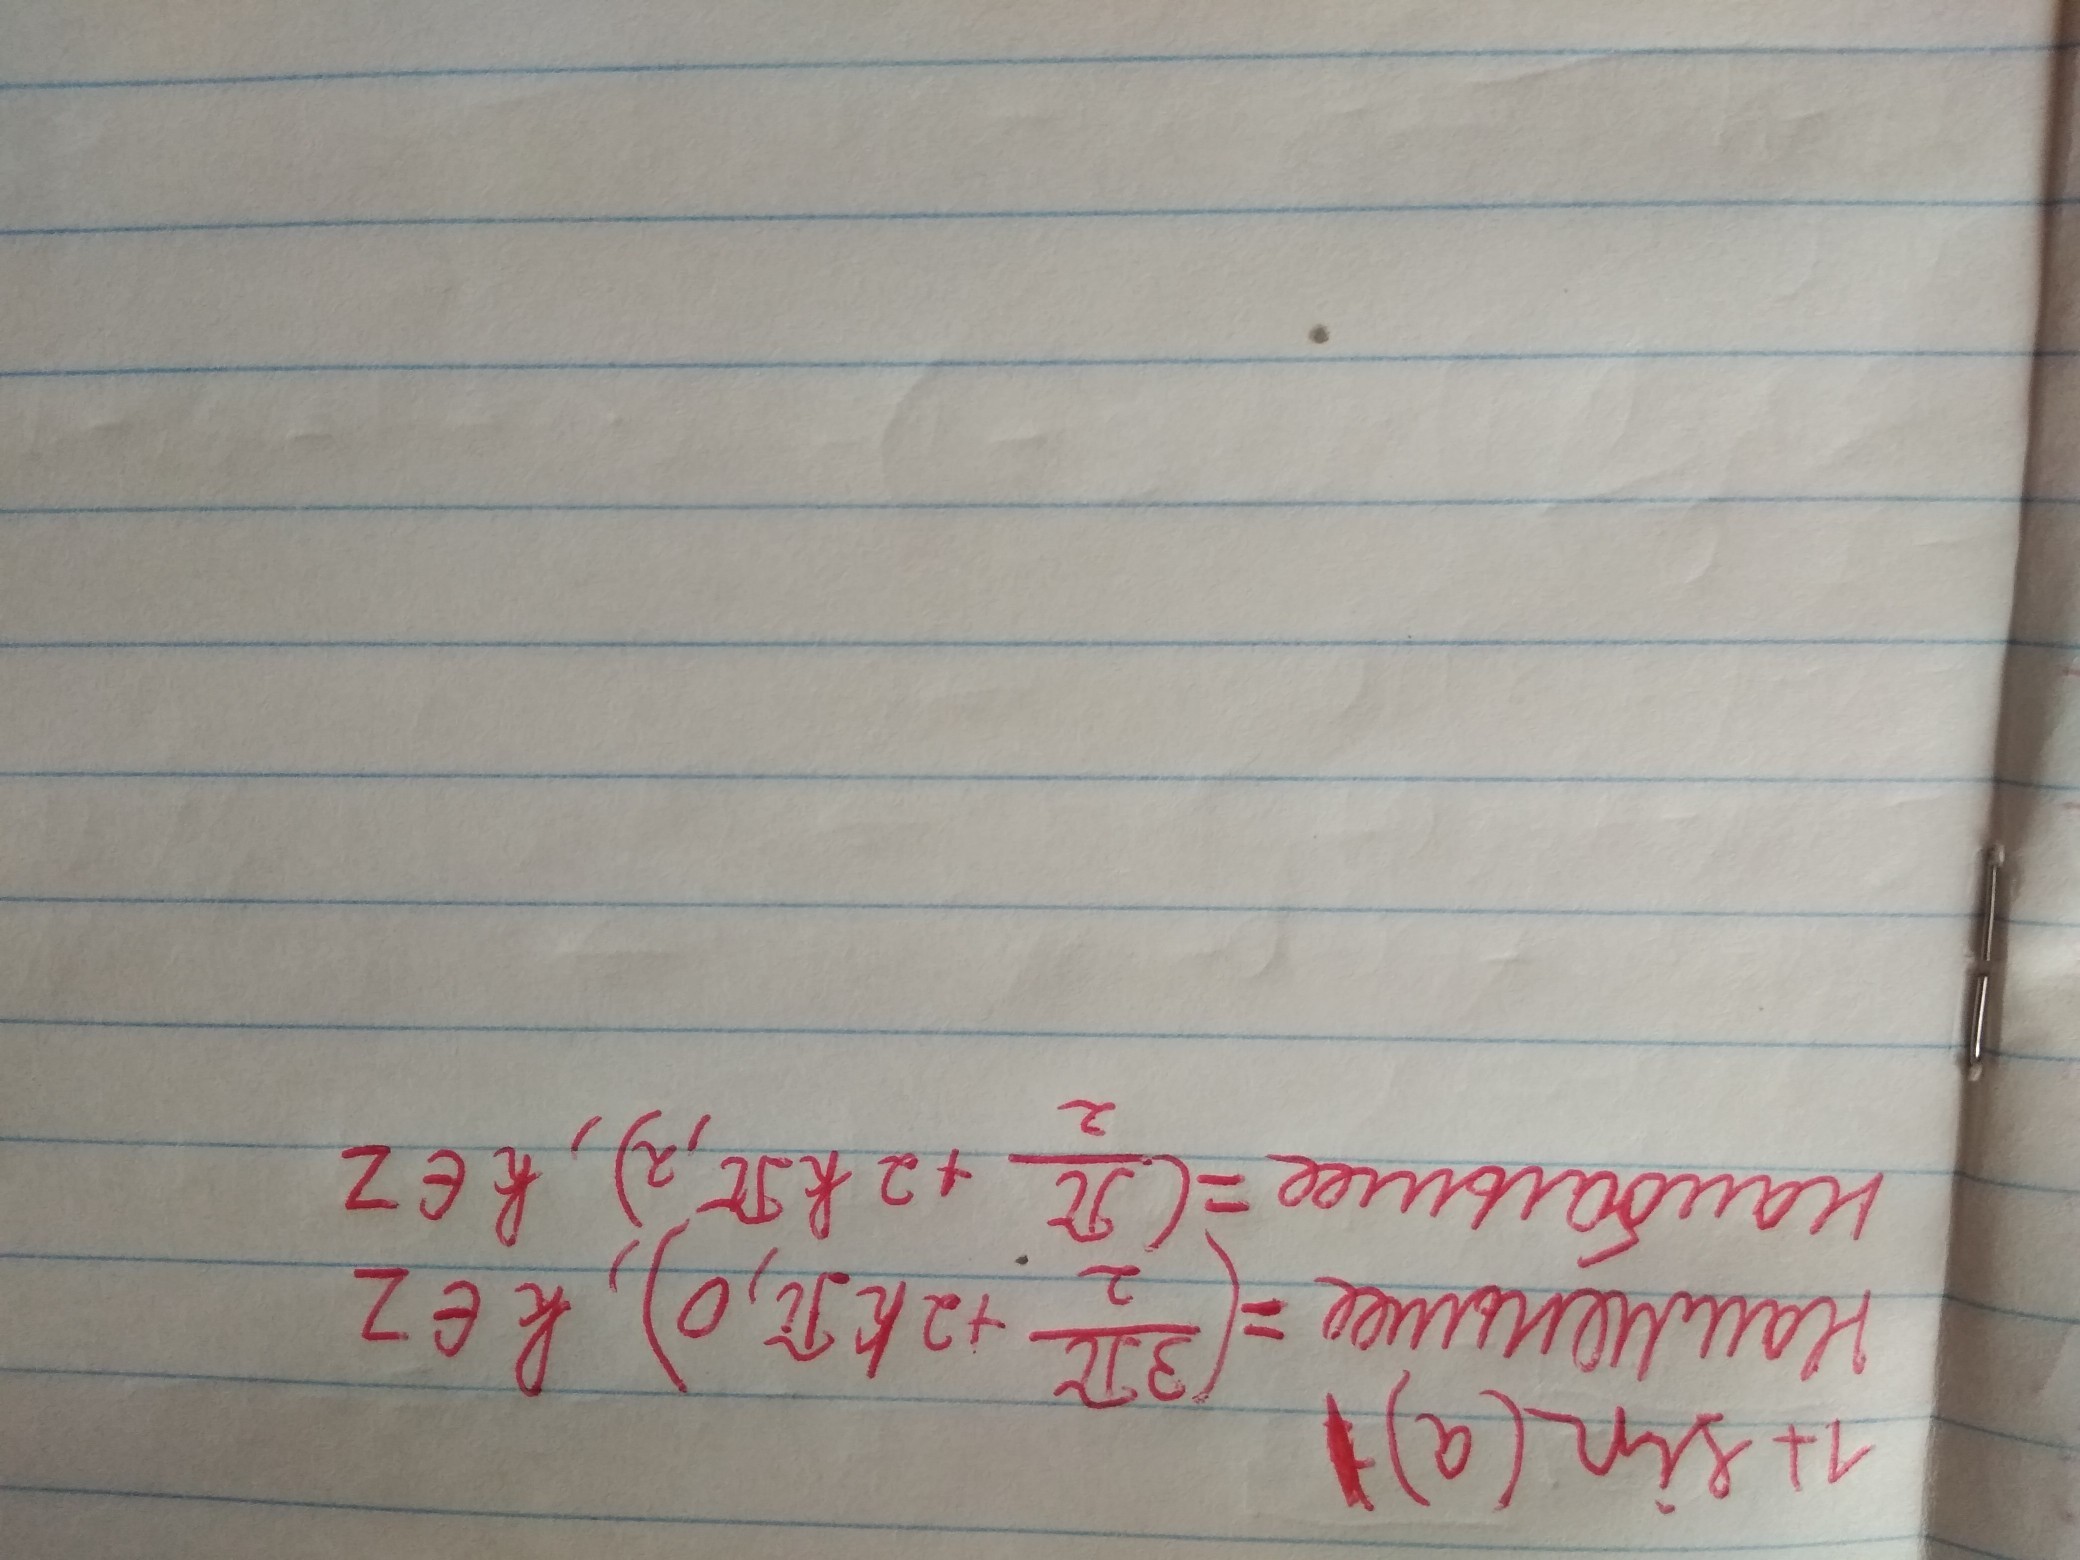 1+ sin(a)
Наименьшее = (3π/2 +2kπ, 0), k ∈ Z
Наибальшее = (π/2 +2kπ, 2), k ∈ Z